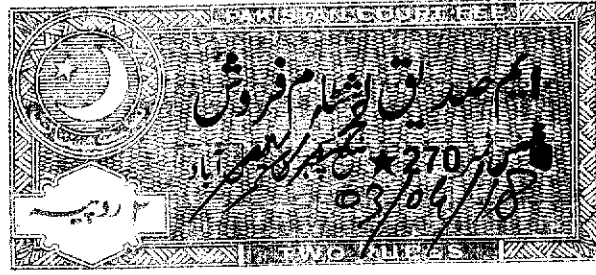 PAKISTAN COURT FEE
ایم صدیق اشٹام فروش
لائسنس نمبر 270 ★ ضلع کچہری آباد
03/04/18
۲ روپیہ
TWO RUPEES